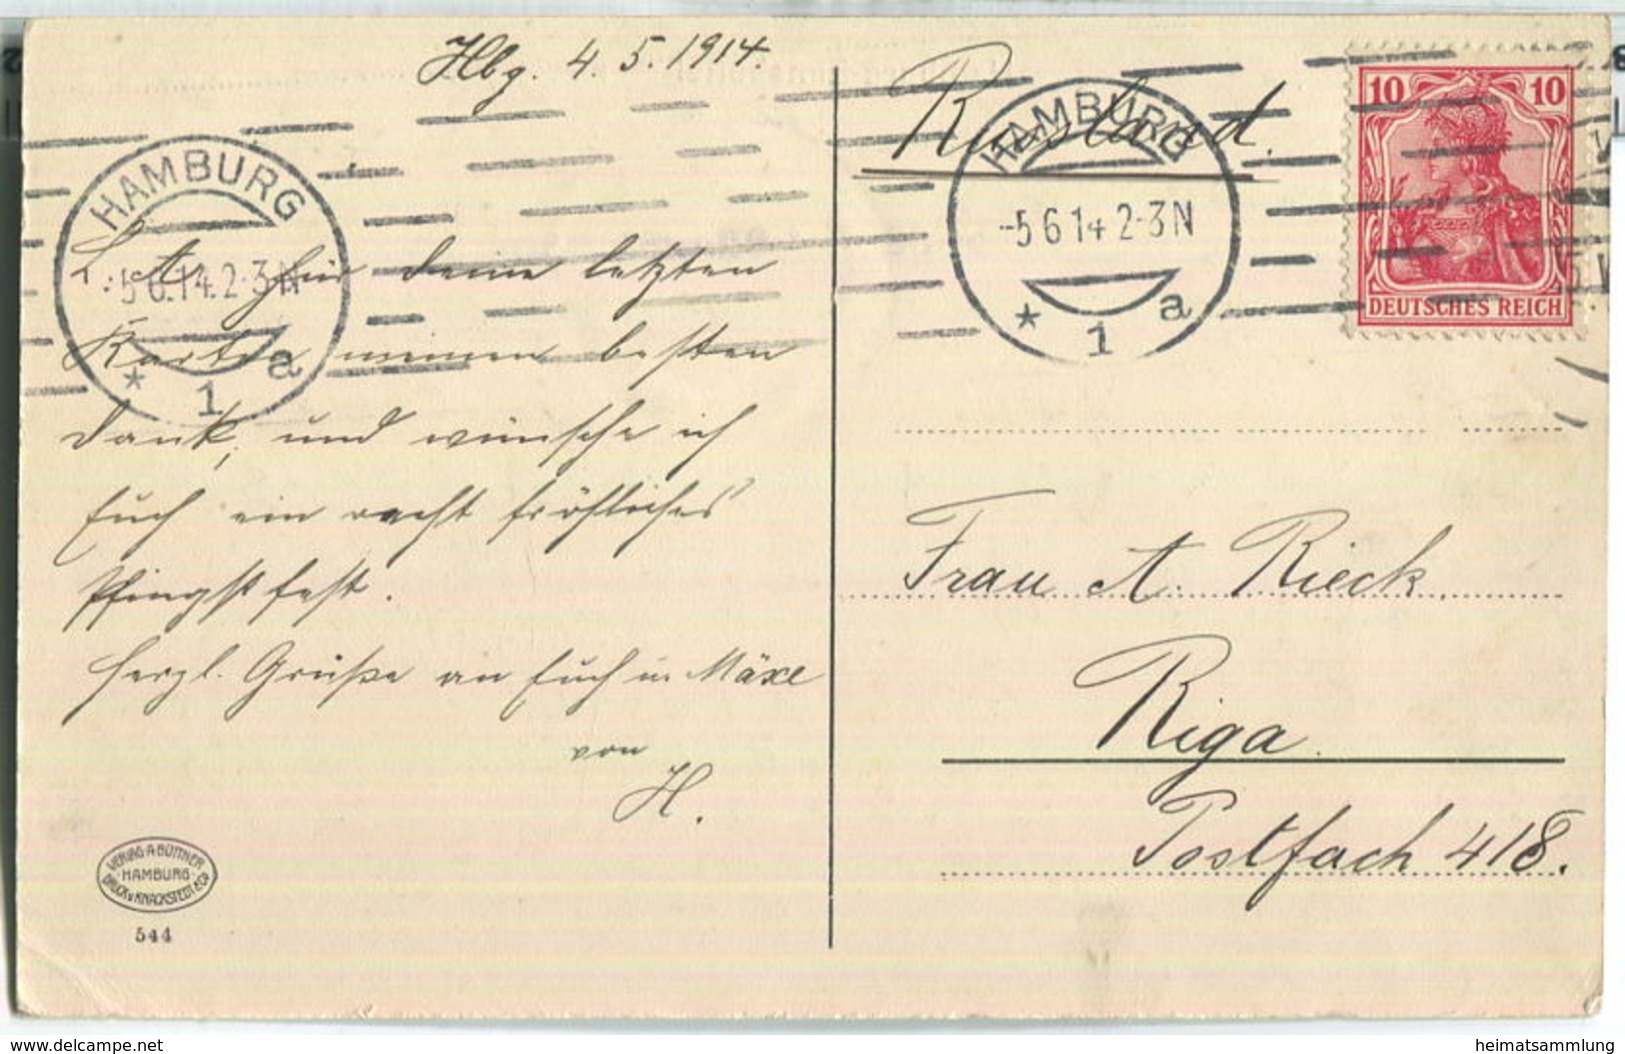 Hbg. 4. 5. 1914.
HAMBURG
5 6.14. 2-3N
* 1 a
L. A. für Deine letzten
Karten meinen besten
Dank, und wünsche ich
Euch ein recht fröhliches
Pfingstfest.
Herzl. Grüße an Euch u. Mäxe
von
H.
VERLAG·A·BÜTTNER
·HAMBURG·
DRUCK v. KNACKSTEDT & Co
544
Russland.
HAMBURG
-5 6 14 2-3N
* 1 a
10 10
DEUTSCHES REICH
Frau A. Rieck.
Riga.
Postfach 418.
www.delcampe.net
heimatsammlung